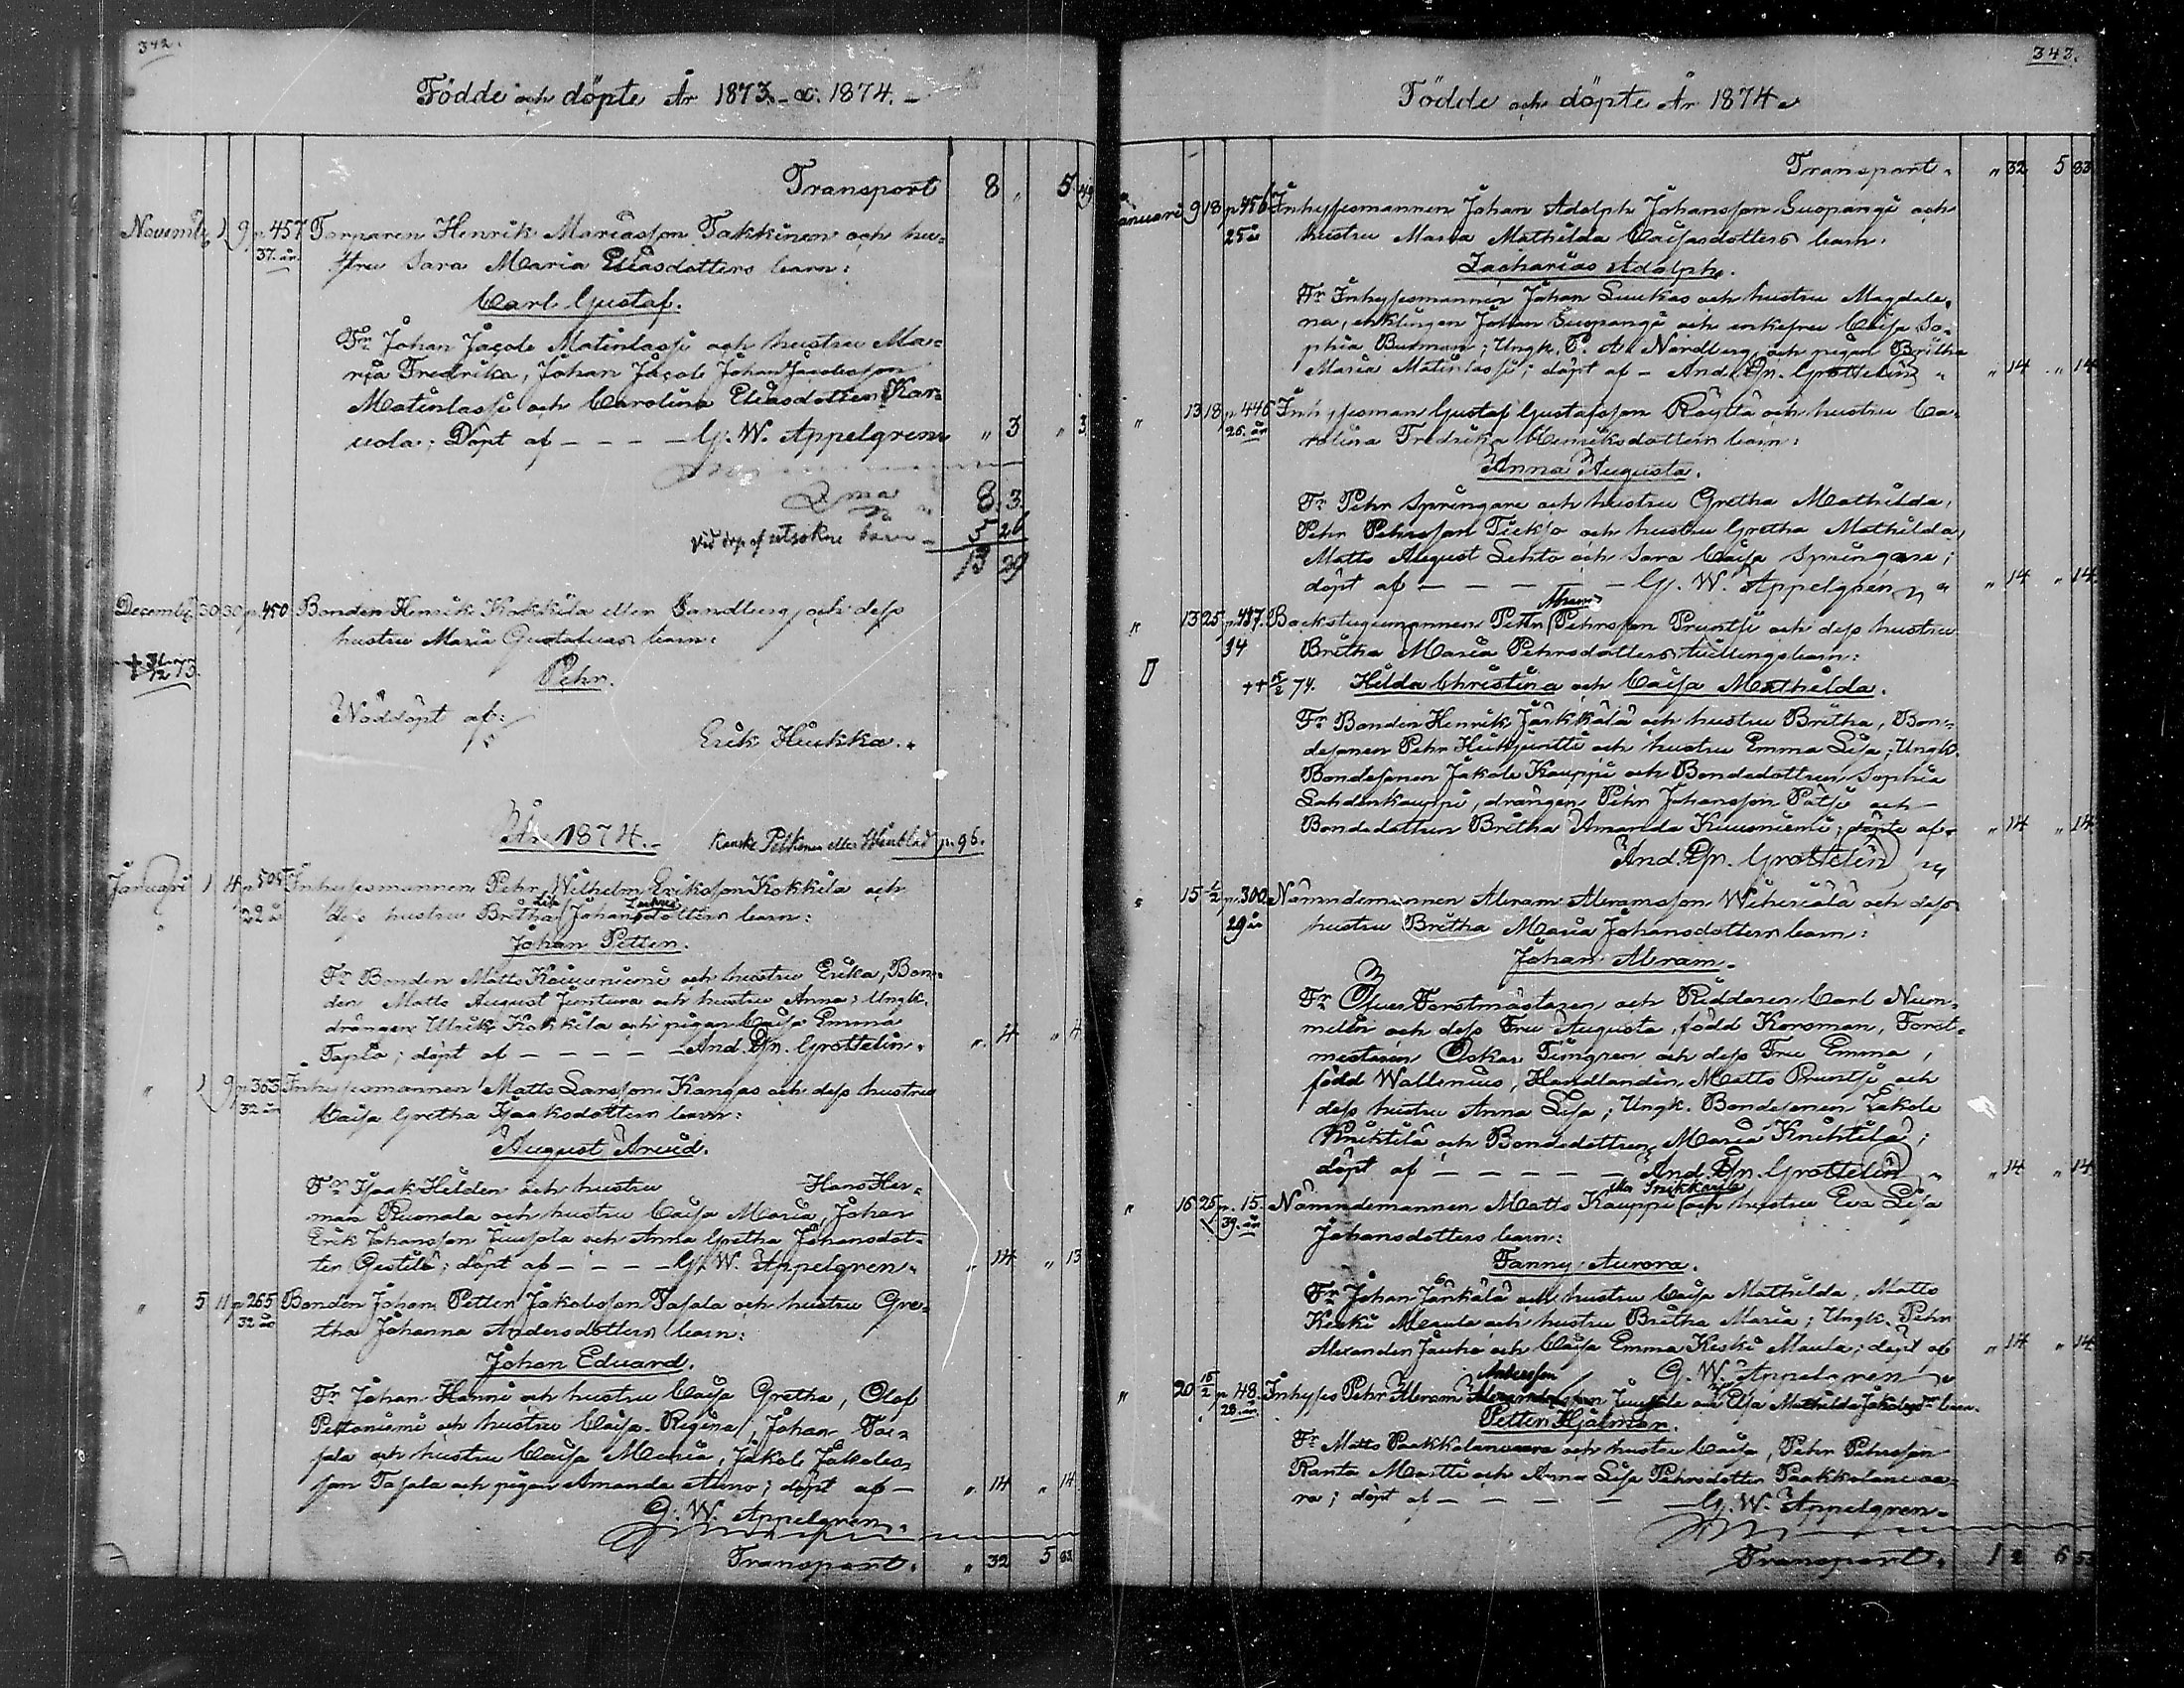 342.
Födde och döpte År 1873. & 1874.
Transport 8 „ 5 49
Novemb. 1 9 p. 457 Torparen Henrik Mariasson Takkinen och hu-
37. år. stru Sara Maria Eliasdotters barn:
Carl Gustaf.
Fr Johan Jacob Matinlassi och hustru Ma-
ria Fredrika, Johan Jacob Johan Jacobsson
Matinlassi och Carolina Eliasdotter Kar-
uola; Döpt af – – – – G. W. Appelgren „ 3 „ 3
8. 3
Vid dop af utsokne barn – 5 26
13 29
Decemb. 30 30 p. 450 Bonden Henrik Kokkila eller Sandberg och dess
hustru Maria Gustafvas barn:
+ 31/12 73.
Pehr.
Nöddöpt af:
Erik Huikka.
År 1874. – p. 96.
Januari 1 4 p. 505 Inhysesmannen Pehr Wilhelm Eriksson Kokkila och
22 år Lisa
dess hustru Britha Johansdotters barn:
Johan Petter.
Fr Bonden Matts Kuusiniemi och hustru Erika, Bon-
den Matts August Juntura och hustru Anna; Ungk.
drängen Ulrik Kokkila och pigan Caisa Emma
Tapio; döpt af – – – – And. Joh. Grottelin. „ 4 „ 4
„ 1 9 p. 363 Inhysesmannen Matts Larsson Kangas och dess hustru
32 år Caisa Gretha Isaksdotters barn:
August Arvid.
Fr Isaak Hilden och hustru Hans Her-
man Ruonala och hustru Caisa Maria, Johan
Erik Johansson Juusola och Anna Gretha Johansdot-
ter Gestilä; döpt af – – – – G. W. Appelgren. „ 14 „ 13
„ 5 11 p. 265 Bonden Johan Petter Jakobsson Tasala och hustru Gre-
32 år tha Johanna Andersdotters barn:
Johan Eduard.
Fr Johan Hanni och hustru Caisa Gretha, Olof
Peltoniemi och hustru Caisa Regina, Johan Ta-
sala och hustru Caisa Maria, Jakob Jakobs-
son Tasala och pigan Amanda Auno; döpt af – „ 14 „ 14
G. W. Appelgren.
Transport. „ 32 5 83
343.
Födde och döpte År 1874.
Transport. „ 32 5 83
Januari 9 18 p. 456 Inhysesmannen Johan Adolph Johansson Suopangi och
25 år hustru Maria Mathilda Caisasdotters barn:
Zacharias Adolph.
Fr Inhysesmannen Johan Luukas och hustru Magdale-
na, enklingen Johan Suopangi och enkefru Caisa So-
phia Budman; Ungk. P. A. Nordberg och pigan Britha
Maria Matinlassi; döpt af – And. Joh. Grottelin „ „ 14 „ 14
„ 13 18 p. 446 Inhysesman Gustaf Gustafsson Röyttä och hustru Ca-
26. år rolina Fredrika Henriksdotters barn:
Anna Augusta.
Fr Pehr Springare och hustru Gretha Mathilda,
Pehr Pehrsson Tiekso och hustru Gretha Mathilda,
Matts August Lehto och Sara Caisa Springare;
döpt af – – – – – G. W. Appelgren „ „ 14 „ 14
Abram
„ 13 25 p. 487. Backstugumannen Petter Pehrsson Pruntsi och dess hustru
34 Britha Maria Pehrsdotters tvillingsbarn:
++ 15/2 74. Hilda Christina och Caisa Mathilda.
Fr Bonden Henrik Jänkkälä och hustru Britha, Bon-
desonen Pehr Huhanantti och hustru Emma Lisa; Ungk.
Bondesonen Jakob Kauppi och Bondedottren Sophia
Lahdenkauppi, drängen Pehr Johansson Pätsi och –
Bondedottren Britha Amanda Kuusniemi; döpte af „ 14 „ 14
And. Joh. Grottelin
„ 15 1/2 p. 300 Nämndemannen Abram Abramsson Wiheriälä och dess
29 år hustru Britha Maria Johansdotters barn:
Johan Abram.
Fr Öfver Forstmästaren och Riddaren Carl Num-
melin och dess Fru Augusta, född Korsman, Forst-
mästaren Oskar Timgren och dess Fru Emma,
född Wallenius, Handlanden Matts Pruntsi och
dess hustru Anna Lisa; Ungk. Bondesonen Jakob
Knihtilä och Bondedottren Maria Knihtilä;
döpt af – – – – – And. Joh. Grottelin „ 14 „ 14
„ 16 25 p. 15. Nämndemannen Matts Kauppi och hustru Eva Lisa
39. år
Johansdotters barn:
Fanny Aurora.
Fr Johan Jänkälä och hustru Caisa Mathilda, Matts
Keski Maula och hustru Britha Maria; Ungk. Pehr
Alexander Jauho och Caisa Emma Keski Maula; döpt af „ 14 „ 14
G. W. Appelgren
Andersson
„ 20 15/2 p. 48. Inhyses Pehr Abram Juusola och Elsa Mathilda Jakobsdr barn.
28. år
Petter Hjalmar.
Fr Matts Paakkolanvaara och hustru Caisa, Pehr Pehrsson
Ranta Martti och Anna Lisa Pehrsdotter Paakkolanvaa-
ra; döpt af – – – – – G. W. Appelgren.
Transport. 1 2 6 53